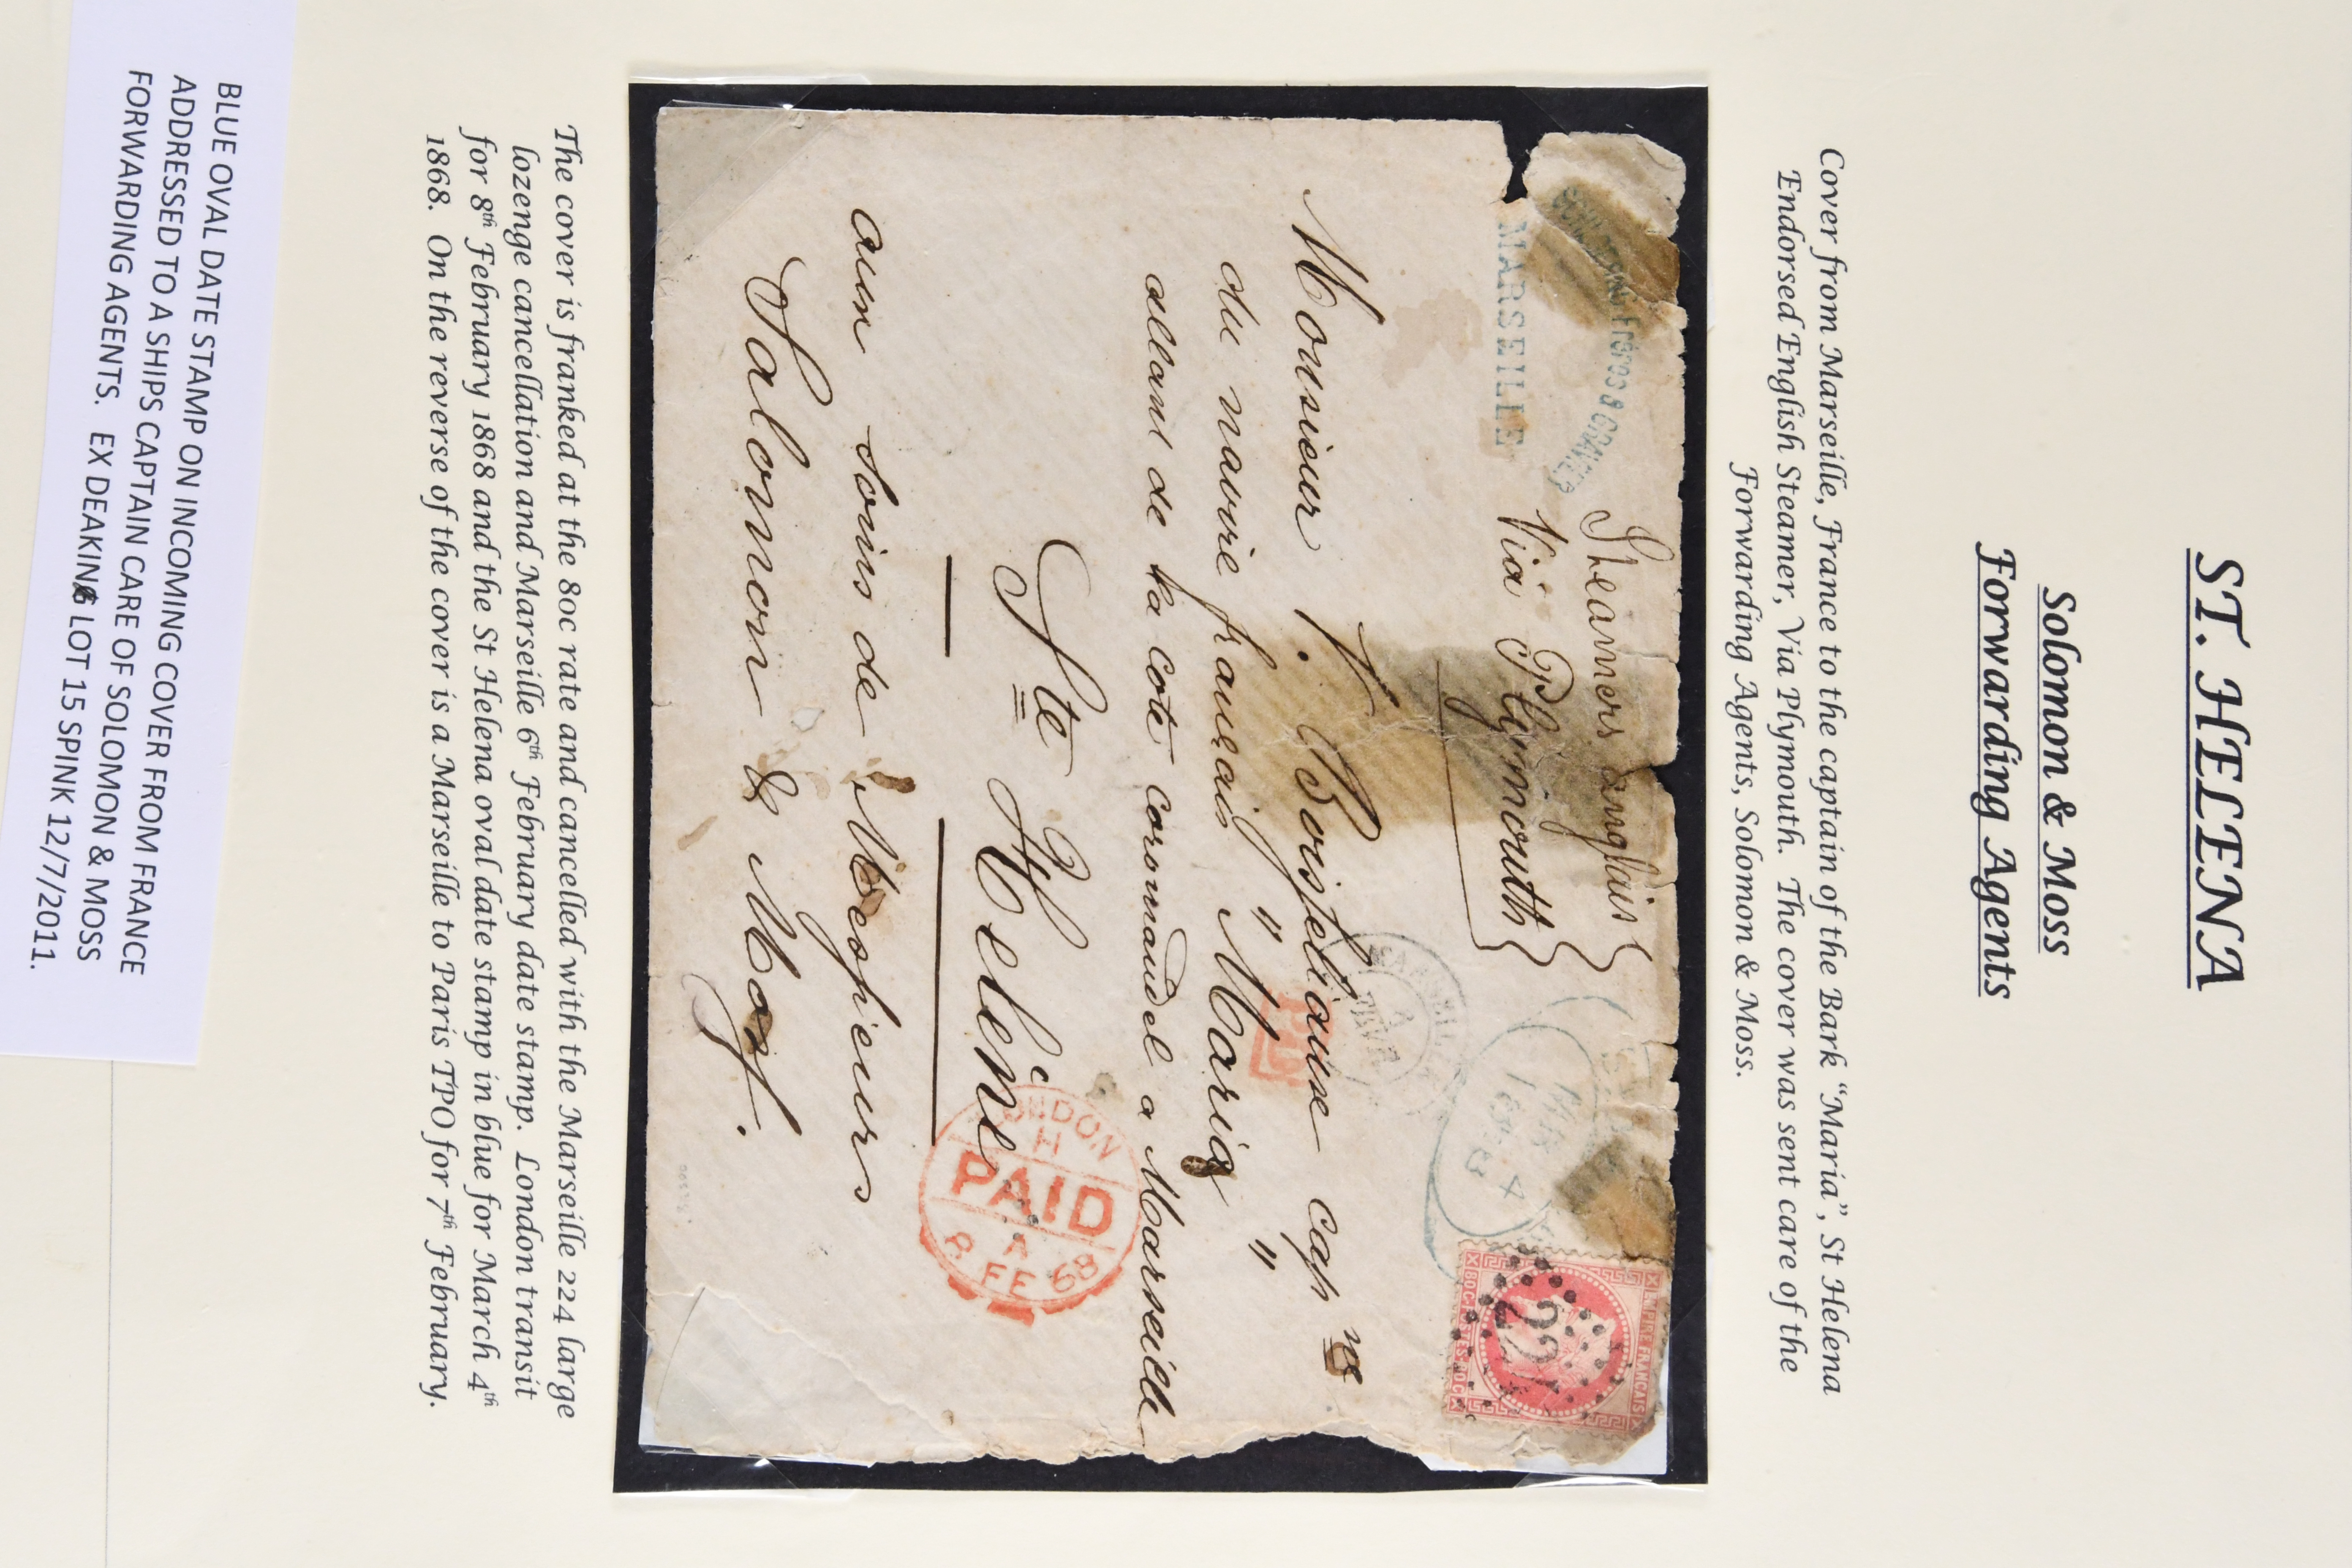 ST. HELENA
Solomon & Moss
Forwarding Agents
Cover from Marseille, France to the captain of the Bark “Maria”, St Helena
Endorsed English Steamer, Via Plymouth. The cover was sent care of the
Forwarding Agents, Solomon & Moss.
Frères &
MARSEILLE
Steamers anglais
Via Plymouth
MR 4
1868
EMPIRE FRANCAIS
80 C POSTES 80 C
224
MARSEILLE
PD
Monsieur Cap ne
du navire français " Maria "
allant de la cote coromandel a Marseille
Ste Helene
aux soins de Messieurs
Salomon & Moss.
LONDON
H
PAID
A
8 FE 68
The cover is franked at the 80c rate and cancelled with the Marseille 224 large
lozenge cancellation and Marseille 6th February date stamp. London transit
for 8th February 1868 and the St Helena oval date stamp in blue for March 4th
1868. On the reverse of the cover is a Marseille to Paris TPO for 7th February.
BLUE OVAL DATE STAMP ON INCOMING COVER FROM FRANCE
ADDRESSED TO A SHIPS CAPTAIN CARE OF SOLOMON & MOSS
FORWARDING AGENTS. EX DEAKIN LOT 15 SPINK 12/7/2011.